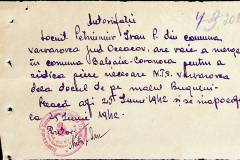 Autorizatie
Locuit. Petruninir Ivan P. din comuna
Varvarovca jud. Oceacov, are voie a merge
în comuna Balşaia-Coronoca pentru a
ridica piere necesare M.T.S. Varvarovca
dela docul de pe malul Bugului-
Pleacă azi 25 Iunie 1942 şi se înapoiază
la 25 Iunie 1942.
Pretor